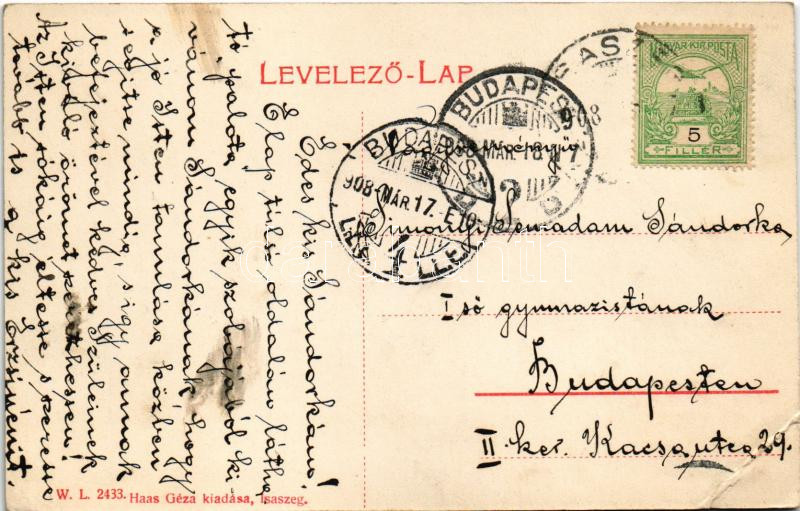 LEVELEZŐ-LAP
MAGYAR·KIR·POSTA
5
FILLÉR
BUDAPEST
908 MÁR. 17. E10
4
ISASZ
908
BUDAPEST
MÁR. 18
Simonffy Semiadam Sándorka
I ső gymnazistának
Budapesten
II ker. Kacsa utca 29.
Édes kis Sándorkám!
E lap túlsó oldalán látha-
tó palota egyik szobájából ki-
vánom Sándorkának hogy
a jó Isten tanulása közben
segítse mindig, s így annak
befejeztével kedves Szüleinek
kiváló örömet szerezhessen!
Az Isten sokáig éltesse s szeresse
tovább is a kis Erzsinénit.
W. L. 2433. Haas Géza kiadása, Isaszeg.